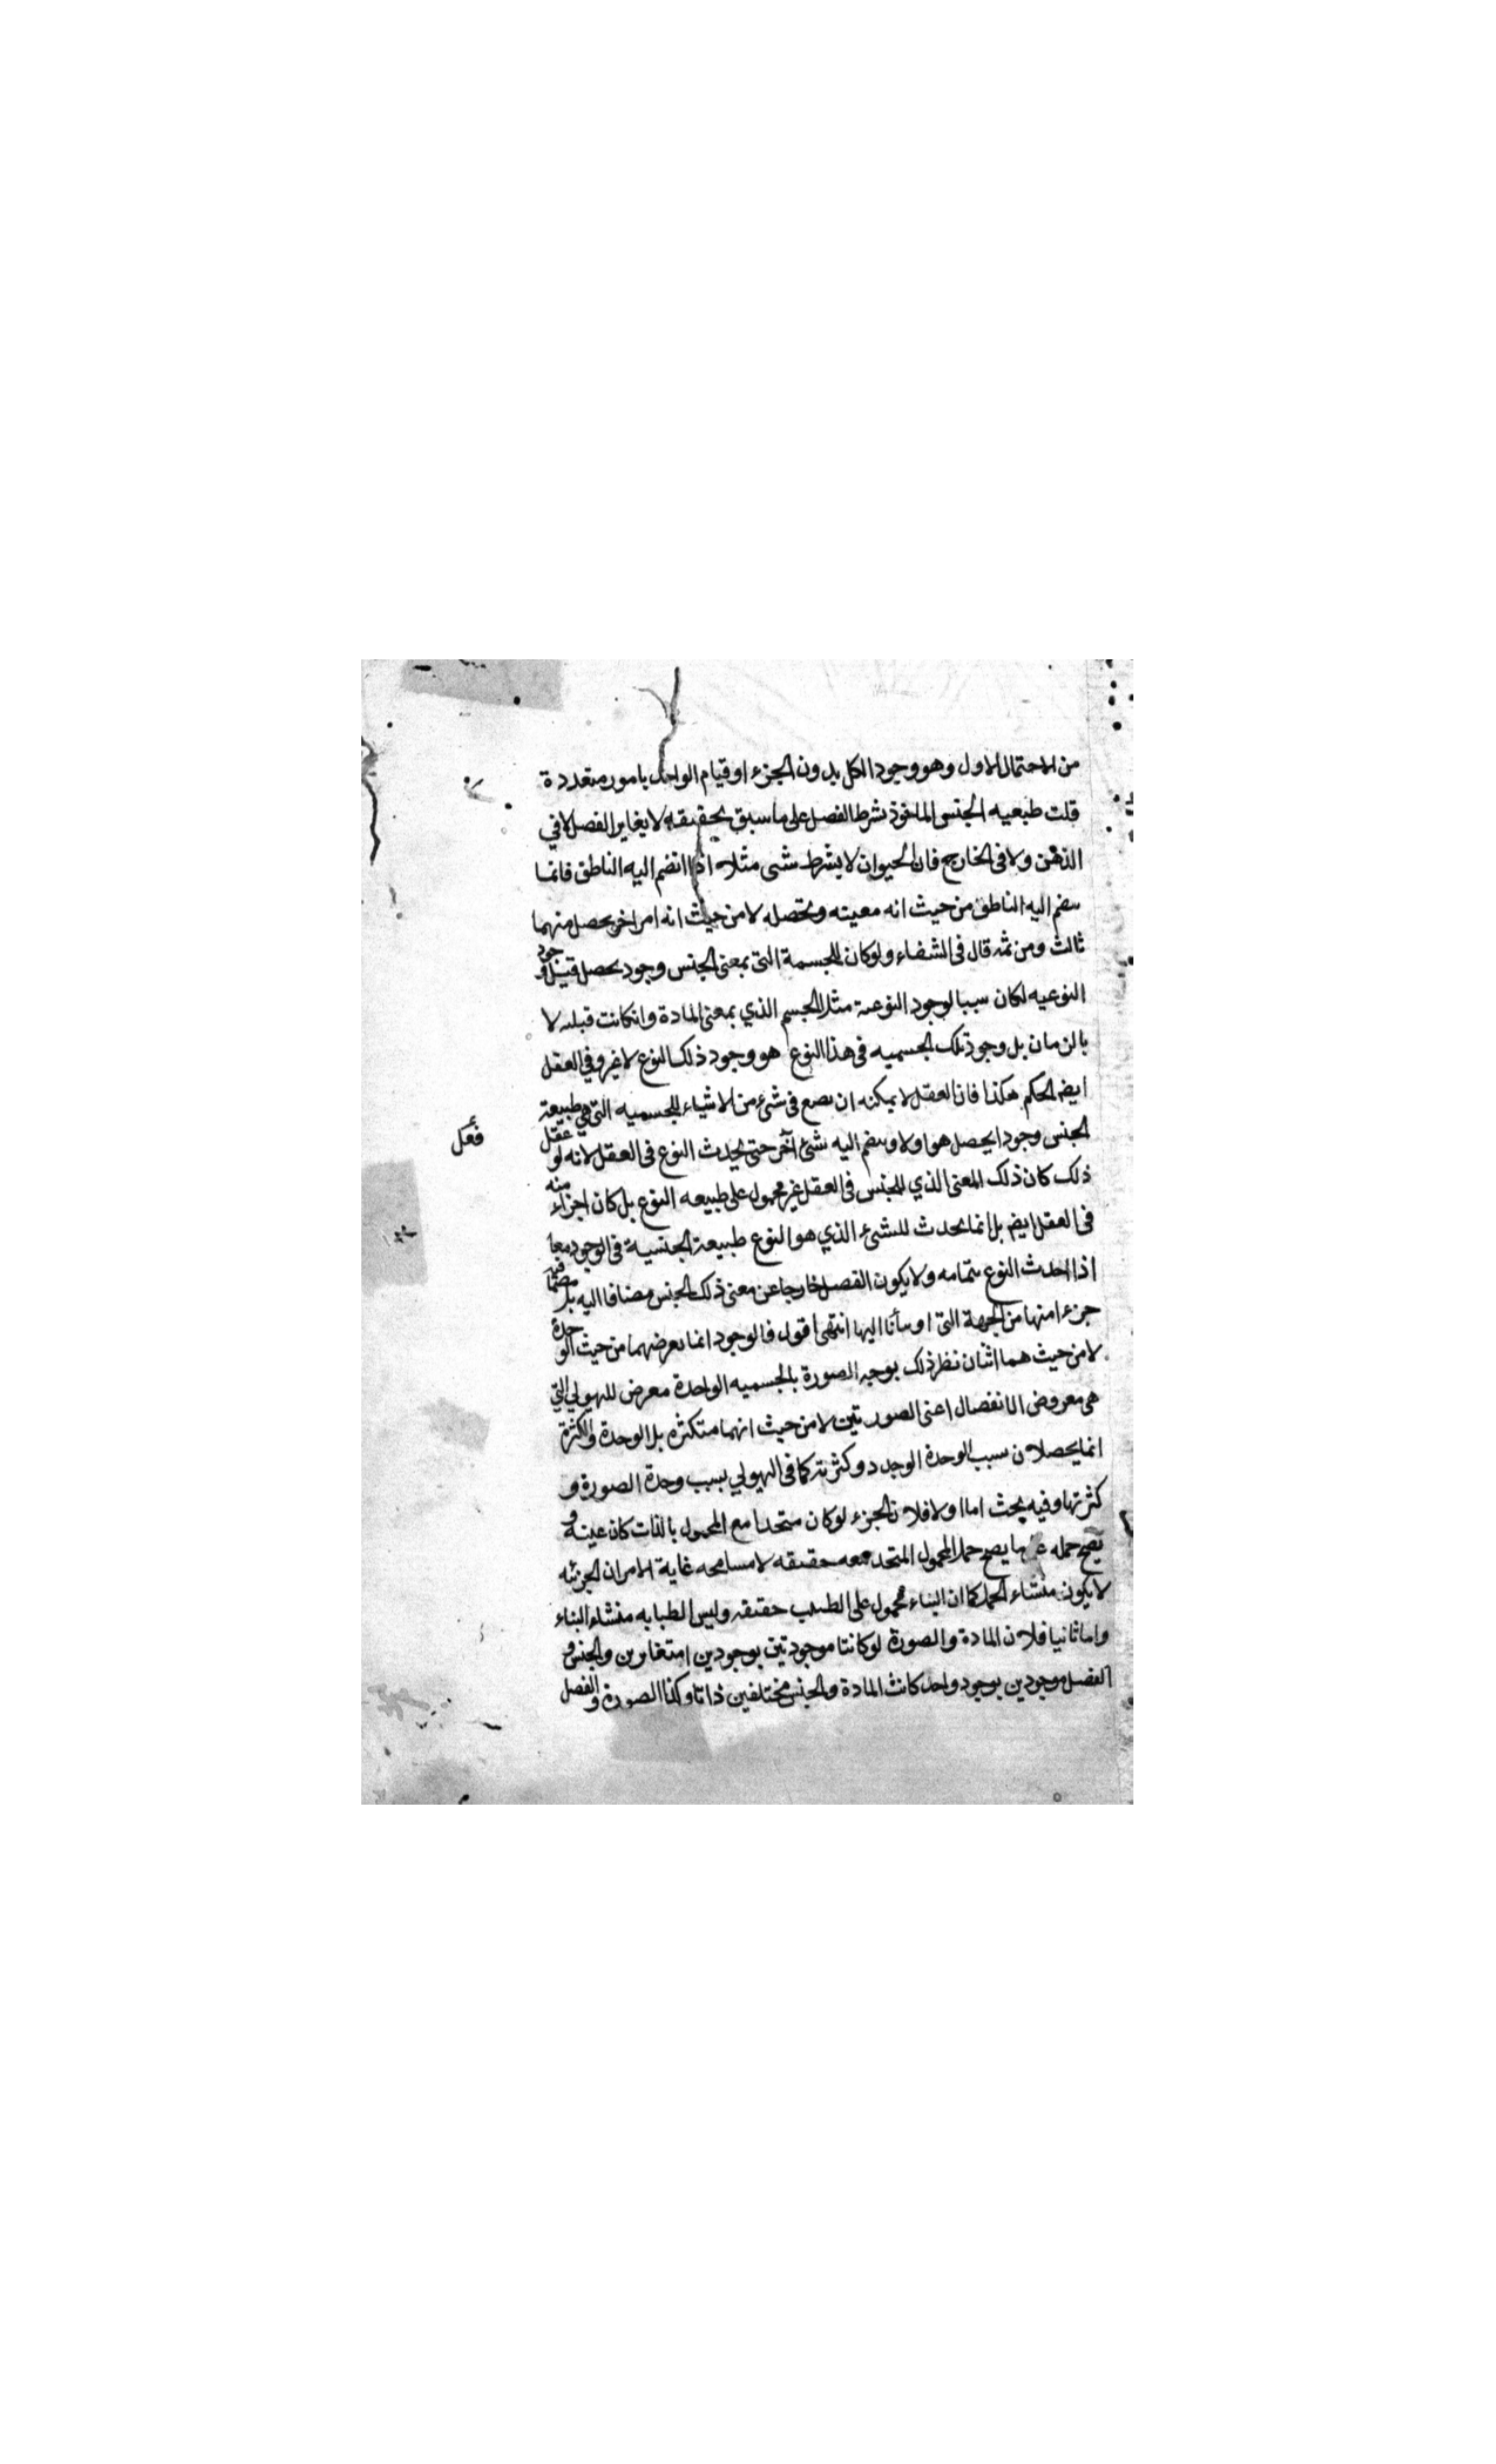 من الاحتمال الاول وهو وجود الكل بدون الجزء او قيام الواحد بامور متعددة
قلت طبعيه الجنس الماخوذ بشرط الفصل على ما سبق بحقيقه لا يغاير الفصل لا في
الذهن ولا فى الخارج فان الحيوان لا بشرط شى مثلا اذا انضم اليه الناطق فانما
ينضم اليه الناطق من حيث انه معينه ومحصله لا من حيث انه امر اخر يحصل منهما
ثالث ومن ثمه قال فى الشفاء ولو كان للجسمة التى بمعنى الجنس وجود يحصل قبل وجود
النوعيه لكان سببا لوجود النوعية مثل الجسم الذي بمعنى المادة وان كانت قبليه لا
بالزمان بل وجود تلك الجسميه فى هذا النوع هو وجود ذلك النوع لا غير وفي العقل
ايضا الحكم هكذا فان العقل لا يمكنه ان يضع فى شئ من الاشياء للجسميه التى هي طبيعة
الجنس وجودا يحصل هو اولا وينضم اليه شئ آخر حتى يحدث النوع فى العقل لانه لو عقل
فعل
ذلك كان ذلك المعنى الذي للجنس فى العقل غير محمول على طبيعه النوع بل كان اجزاء منه
فى العقل ايضا بل انما يحدث للشئ الذي هو النوع طبيعة الجنسية فى الوجود معا
اذا احدث النوع بتمامه ولا يكون الفصل خارجا عن معنى ذلك الجنس مضافا اليه بل مضمنا فيه
جزءا منها من الجهة التى اومأنا اليها انتهى اقول فالوجود انما يعرضهما من حيث الوحدة
لا من حيث هما اثنان نظر ذلك بوجه الصورة بالجسميه الواحدة معرض للهيولي التي
هى معروض الانفصال اعنى الصورتين لا من حيث انهما متكثره بل الوحدة والكثرة
انما يحصلان بسبب الوحدة الوجود وكثرته كما فى الهيولي بسبب وحدة الصورة و
كثرتها وفيه بحث اما اولا فلان الجزء لو كان متحدا مع المحمول بالذات كان عينه و
يصح حمله ما يصح حمل المحمول المتحد معه حقيقه لا مسامحه غاية الامر ان الجزئه
لا يكون منشاء الحمل كما ان البناء محمول على الطبيب حقيقه وليس الطبابه منشاء البناء
واما ثانيا فلان المادة والصورة لو كانتا موجودتين بوجودين امتغايرين والجنس و
الفصل موجودين بوجود واحد كانت المادة والجنس مختلفين ذاتا وكذا الصورة والفصل